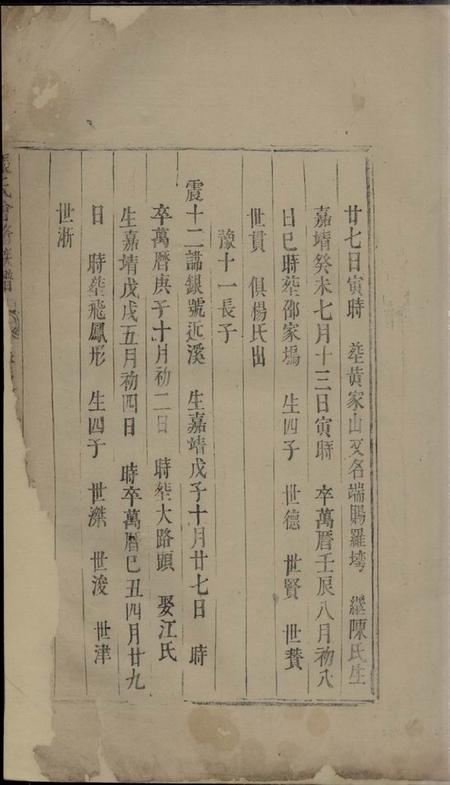 廿七日寅時 塟黄家山又名端賜羅塆 繼陳氏生
嘉靖癸未七月十三日寅時 卒萬曆壬辰八月初八
日巳時塟邵家塢 生四子 世德 世賢 世賛
世貫 俱楊氏出
豫十一長子
震十二諱銀號近溪 生嘉靖戊子十月廿七日 時
卒萬曆庚子十月初二日 時塟大路頭 娶江氏
生嘉靖戊戌五月初四日 時卒萬曆巳丑四月廿九
日 時塟飛鳳形 生四子 世滐 世浚 世津
世浙
氏會脩族譜